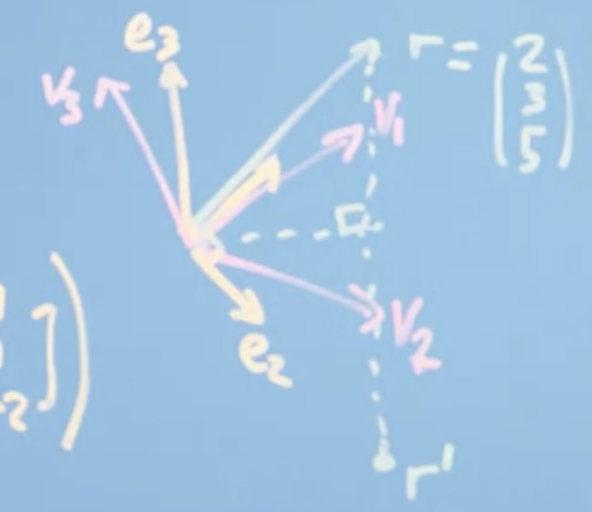 e3
v3
r = (2
3
5)
v1
-2 ] )
v2
e2
r'